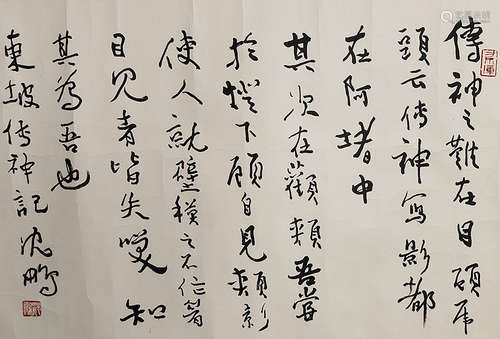 傳神之難在目頋虎
頭云傳神寫影都
在阿堵中
其次在顴頰吾嘗
於燈下顧自見頰影
使人就壁模之不作眉
目見者皆失笑知
其為吾也
東坡傳神記沈鵬